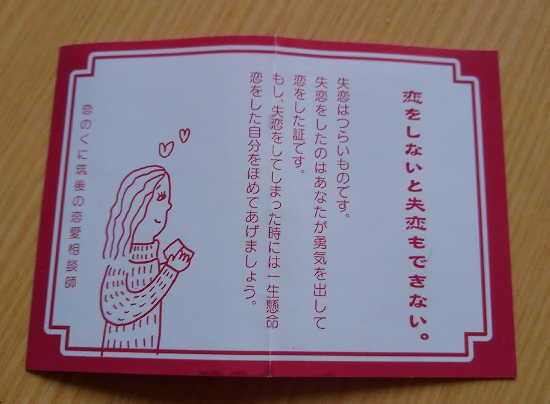 恋をしないと失恋もできない。
失恋はつらいものです。
失恋をしたのはあなたが勇気を出して
恋をした証です。
もし、失恋をしてしまった時には一生懸命
恋をした自分をほめてあげましょう。
恋のくに筑後の恋愛相談師